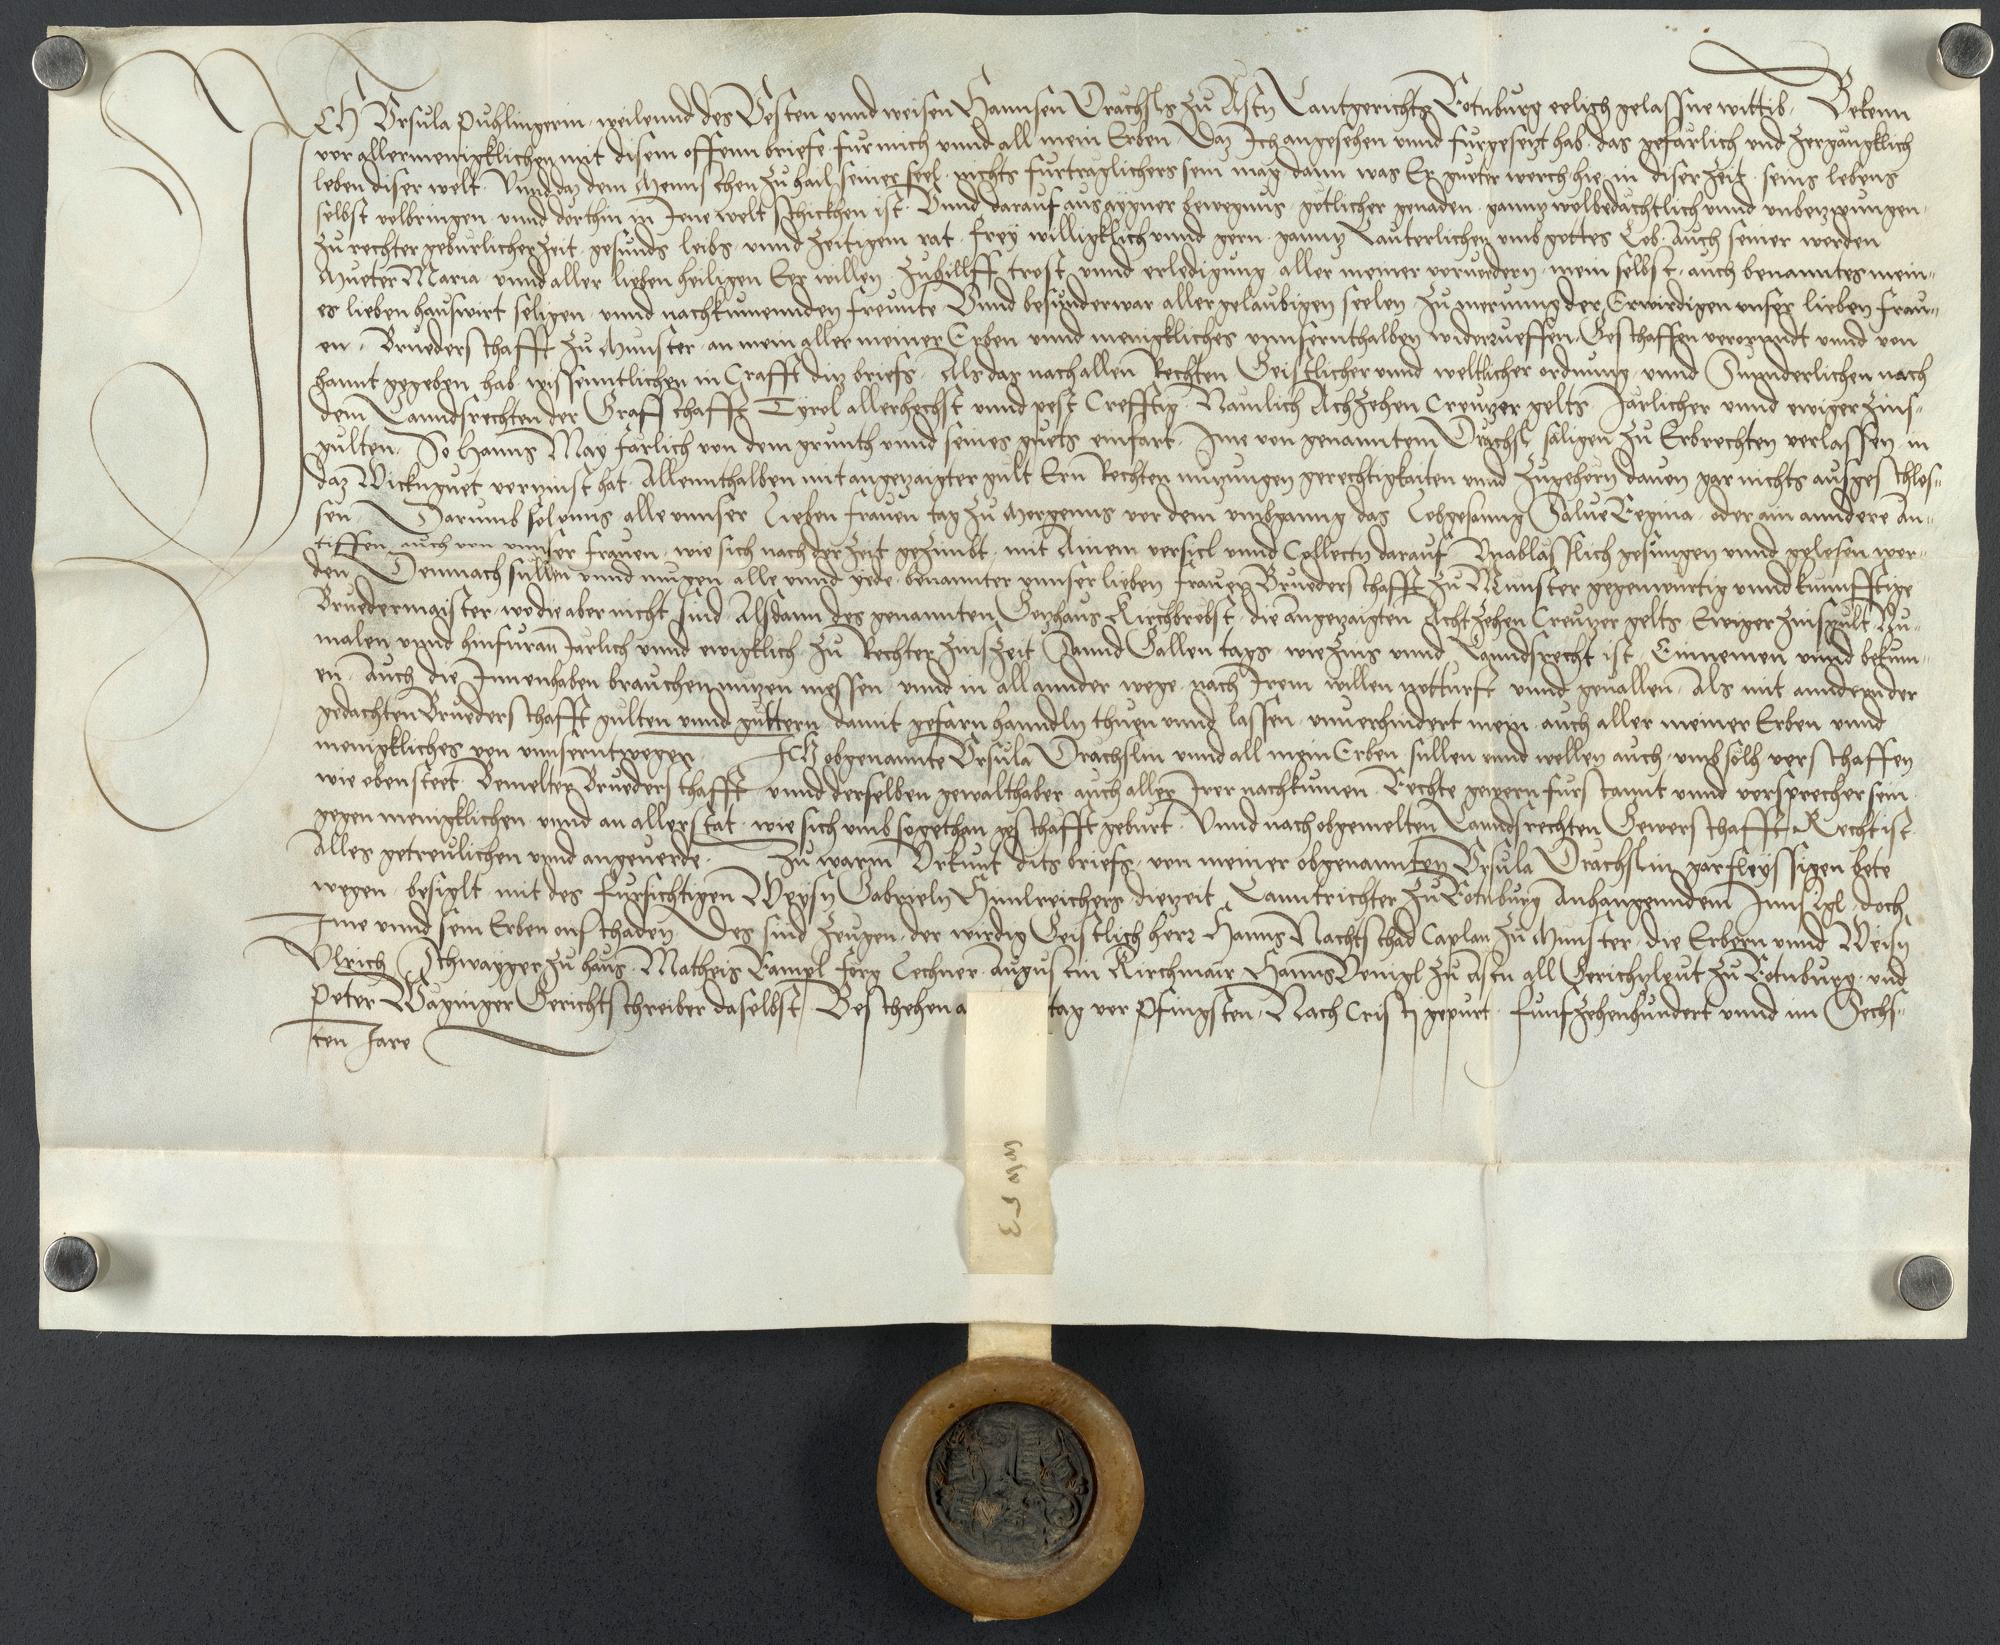 ICH Ursula Puhlingerin weilennd des Vesten unnd weisen Hannsen Drächsls zu Astn Lantgerichts Rotnburg eelich gelassne wittib Bekenn
vor allermenigklichen mit disem offenn briefe fur mich unnd all mein Erben Daz Ich angesehen unnd furgesetzt hab das gefärlich und zergängklich
leben diser welt Unnd daz dem Menschen zu hail seiner seel nichts furtraglichers sein mag dann was Er gueter werch hie in diser zeit seins lebens
selbst volbringen unnd dorthin in Jene welt schickhen ist Unnd darauf aus aygner bewegnus götlicher genaden gannz wolbedächtlich unnd unbezwungen
zu rechter geburlicher zeit gesunds leibs unnd zeitigem rat frey willigklich unnd gern gannz Lauterlichen umb gottes Lob auch seiner werden
Mueter Maria unnd aller lieben heiligen Eer willen zu hillff trost unnd erledigung aller meiner vorvordern mein selbst auch benanntes mein-
es lieben hauswirt seligen unnd nachkumennden freunte Unnd besunderwar aller gelaubigen seelen zu merunng der Erwirdigen unser lieben frau-
en Bruederschafft zu Munster an mein aller meiner Erben unnd menigkliches unnsernthalben widerrueffen Geschaffen verordndt unnd von
hannt gegeben hab wissenntlichen in Crafft ditz briefs Als das nach allen Rechten Geistlicher unnd weltlicher ordnung unnd Sunderlichen nach
dem Lanndsrechten der Graffschafft Tyrol allerhechst unnd pest Crefftig Namlich Achzehen Creutzer gelts Järlicher unnd ewiger zins-
gulten So Hanns May järlich von dem grunth unnd seines guets einfart Ime von genanntem Drächsl säligen zu Erbrechten verlassen in
daz Wickngut verzinst hat Allennthalben mit angezaigter gult Ern Rechten nutzungen gerechtigkaiten unnd zugehern davon gar nichts ausgeschlos-
sen Darumb sol unns alle unnser Lieben frauen tag zu Morgenns vor dem umbganng das Lobgesanng Salve Regina oder ain anndere An-
tiffen auch von unnser frauen wie sich nach der zeit gezimbt mit Ainem versicl unnd Collectn darauf Unablässlich gesungen unnd gelesen wer-
den Demnach sullen unnd mugen alle unnd yede benannter unnser lieben frauen Bruederschafft zu Munster gegenwurtig unnd kunnfftige
Bruedermaister wo die aber nicht sind Alsdann des genannten Gotzhaus Kirchbrobst die angezaigten Achtzehen Creutzer gelts Ewiger zinsgult Nu-
malen unnd hinfuran Järlich unnd ewigklich zu Rechter zinszeit Sannd Gallen tags wie zins unnd Lanndsrecht ist Einnemen unnd bekum-
en Auch die Innenhaben brauchen nutzen niessen unnd in all annder wege nach Irem willen notturft unnd gevallen Als mit anndern der
gedachten Bruederschafft gulten unnd guttern damit gefarn hanndln thuen unnd lassen unverhindert mein auch aller meiner Erben unnd
menigkliches von unnserntwegen ICH obgenannte Ursula Drächslin unnd all mein Erben sullen unnd wellen auch umb sölh verschaffen
wie oben steet Bemelter Bruederschafft unnd derselben gewalthaber auch aller Irer nachkumen Rechte gewern furstannt unnd versprecher sein
gegen menigklichen unnd an aller stat wie sich umb sogethan geschafft geburt Unnd nach obgemelten Lanndsrechten Gewerschafft Recht ist
Alles getreulichen unnd angeverde Zu warm Urkunt dits briefs von meiner obgenannten Ursula Drächslin gar fleyssigen bete
wegen besiglt mit des fursichtigen Weysn Gabrieln Himlreichers diezeit Lanntrichter zu Rotnburg Anhangenndem Innsigl doch
Ime unnd sein Erben on schaden Des sind zeugen der wirdig Geistlich herr Hanns Nachtschad Caplan zu Munster die Erbern unnd Weisn
Ulrich Schwayger zu haus Matheis Rampl Jorg Lechner Augustin Kirchmair Hanns Venigl zu Astn all Gerichtzleut zu Rotnburg und
Peter Wäginger Gerichtschreiber daselbst Beschehen a tag vor Pfingsten Nach Cristi gepurt funfzehenhundert unnd im Sechs-
ten Jare